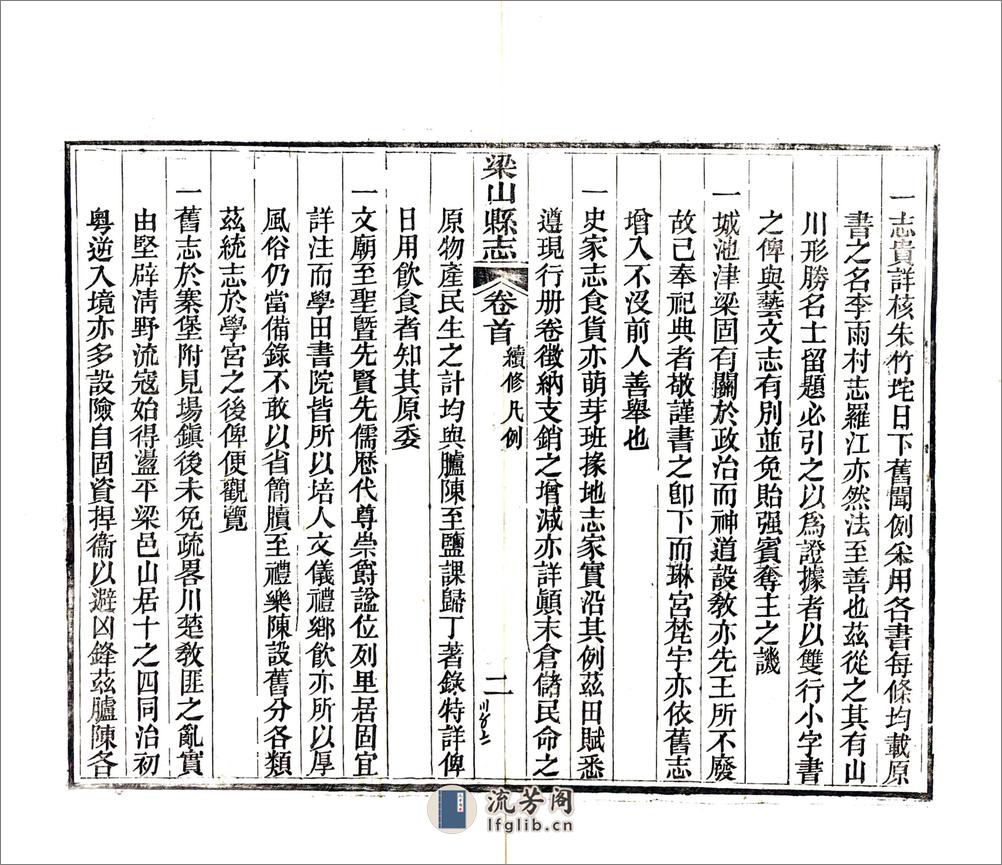 一志貴詳核朱竹垞日下舊聞例采用各書每條均載原
書之名李雨村志羅江亦然法至善也茲從之其有山
川形勝名士留題必引之以爲證據者以雙行小字書
之俾與藝文志有別並免貽强賓奪主之譏
一城池津梁固有關於政治而神道設敎亦先王所不廢
故已奉祀典者敬謹書之卽下而琳宮梵宇亦依舊志
增入不沒前人善舉也
一史家志食貨亦萌芽班掾地志家實沿其例茲田賦悉
遵現行册卷徵納支銷之增減亦詳顚末倉儲民命之
梁山縣志
卷首
續修凡例
二
原物產民生之計均與臚陳至鹽課歸丁著錄特詳俾
日用飲食者知其原委
一文廟至聖曁先賢先儒歷代尊崇爵諡位列里居固宜
詳注而學田書院皆所以培人文儀禮鄉飲亦所以厚
風俗仍當備錄不敢以省簡牘至禮樂陳設舊分各類
茲統志於學宮之後俾便觀覽
一舊志於寨堡附見場鎭後未免疏畧川楚敎匪之亂實
由堅辟淸野流寇始得盪平梁邑山居十之四同治初
粵逆入境亦多設險自固資捍衞以避凶鋒茲臚陳各
流芳阁
lfglib.cn